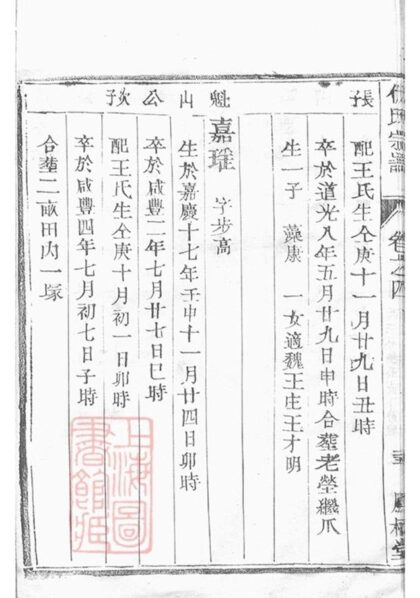 氏宗譜
卷之四
堂
張
魁山公次子
配王氏生仝庚十一月廿九日丑時
卒於道光八年五月廿九日申時合塟老塋繼爪
生一子 藻康 一女適魏王庄王才明
嘉 字步高
生於嘉慶十七年壬申十一月廿四日卯時
卒於咸豐二年七月廿七日巳時
配王氏生仝庚十月初一日卯時
卒於咸豐四年七月初七日子時
合塟二畝田内一塚
上海圖
書館藏